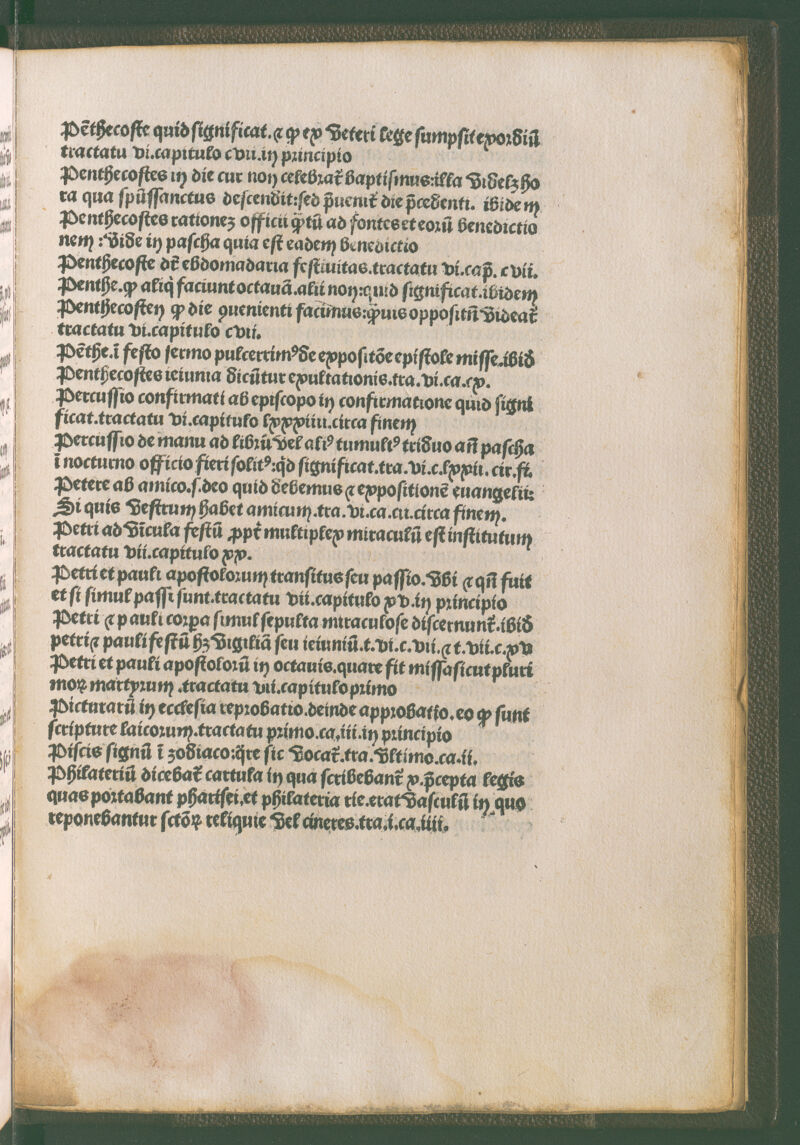 Pẽthecoste quid significat.⁊ ꝙ ex veteri lege sumpsit exordiũ
tractatu vi.capitulo cvii.in principio
Penthecostes in die cur non celebrat᷑ baptismus:illa videlꝫ ho
ra qua spũssanctus descendit:sed p̃uenit᷑ die p̃cedenti. ibidem
Penthecostes rationeꝫ officii q̃tũ ad fontes et eorũ benedictio
nem :vide in pascha quia est eadem benedictio
Penthecoste dr̃ ebdomadaria festiuitas.tractatu vi.cap̃. cvii.
Penthe.ꝙ aliq̃ faciunt octauã.alii non:quid significat.ibidem
Penthecosten ꝙ die ꝯuenienti facimus:q̃uis oppositũ videat᷑
tractatu vi.capitulo cvii.
Pẽthe.ĩ festo sermo pulcerrimꝰ de expositõe epistole misse.ibid̃
Penthecostes ieiunia dicũtur exultationis.tra.vi.ca.cx.
Percussio confirmati ab episcopo in confirmatione quid signi
ficat.tractatu vi.capitulo lxxxiiii.circa finem
Percussio de manu ad librũ vel aliꝰ tumultꝰ triduo añ pascha
ĩ nocturno officio fieri solitꝰ:qd̃ significat.tra.vi.c.lxxii.cir.fi.
Petere ab amico.s.deo quid debemus ⁊ expositionẽ euangelii:
Si quis vestrum habet amicum.tra.vi.ca.cii.circa finem.
Petri ad vĩcula festũ ꝓpt᷑ multiplex miraculũ est institutum
tractatu vii.capitulo xx.
Petri et pauli apostolorum transitus seu passio.vbi ⁊ qñ fuit
et si simul passi sunt.tractatu vii.capitulo xv.in principio
Petri ⁊ pauli corꝑa simul sepulta miraculose discernunt᷑.ibid̃
petri⁊ pauli festũ hꝫ vigiliã seu ieiuniũ.t.vi.c.vii.⁊ t.vii.c.xv
Petri et pauli apostolorũ in octauis.quare fit missa sicut pluri
moꝝ martyrum .tractatu vii.capitulo primo
Picturarũ in ecclesia reprobatio.deinde approbatio.eo ꝙ sunt
scripture laicorum.tractatu primo.ca.iii.in principio
Piscis signũ ĩ zodiaco:q̃re sic vocat᷑.tra.vltimo.ca.ii.
Philateriũ dicebat᷑ cartula in qua scribebant᷑ x.p̃cepta legis
quas portabant pharisei.et philateria rie.erat vasculũ in quo
reponebantur sctõꝝ reliquie vel cineres.tra.i.ca.iiii.